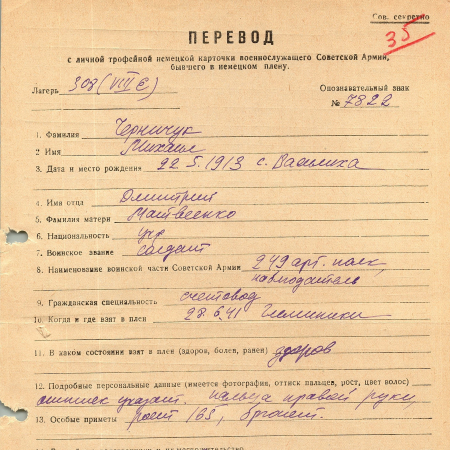 Сов. секретно
35
ПЕРЕВОД
с личной трофейной немецкой карточки военнослужащего Советской Армии,
бывшего в немецком плену.
Лагерь 308 (VIII E) Опознавательный знак
№ 7822
1. Фамилия Черничук
2 Имя Михаил
3. Дата и место рождения 22.5.1913 с. Василиха
4. Имя отца Дмитрий
5. Фамилия матери Матвеенко
6. Национальность укр
7. Воинское звание солдат
8. Наименование воинской части Советской Армии 249 арт. полк,
наводчик
9. Гражданская специальность счетовод
10. Когда и где взят в плен 28.6.41
11. В каком состоянии взят в плен (здоров, болен, ранен) здоров
12. Подробные персональные данные (имеется фотография, оттиск пальцев, рост, цвет волос)
оттиск указат. пальца правой руки,
13. Особые приметы рост 165, брюнет.